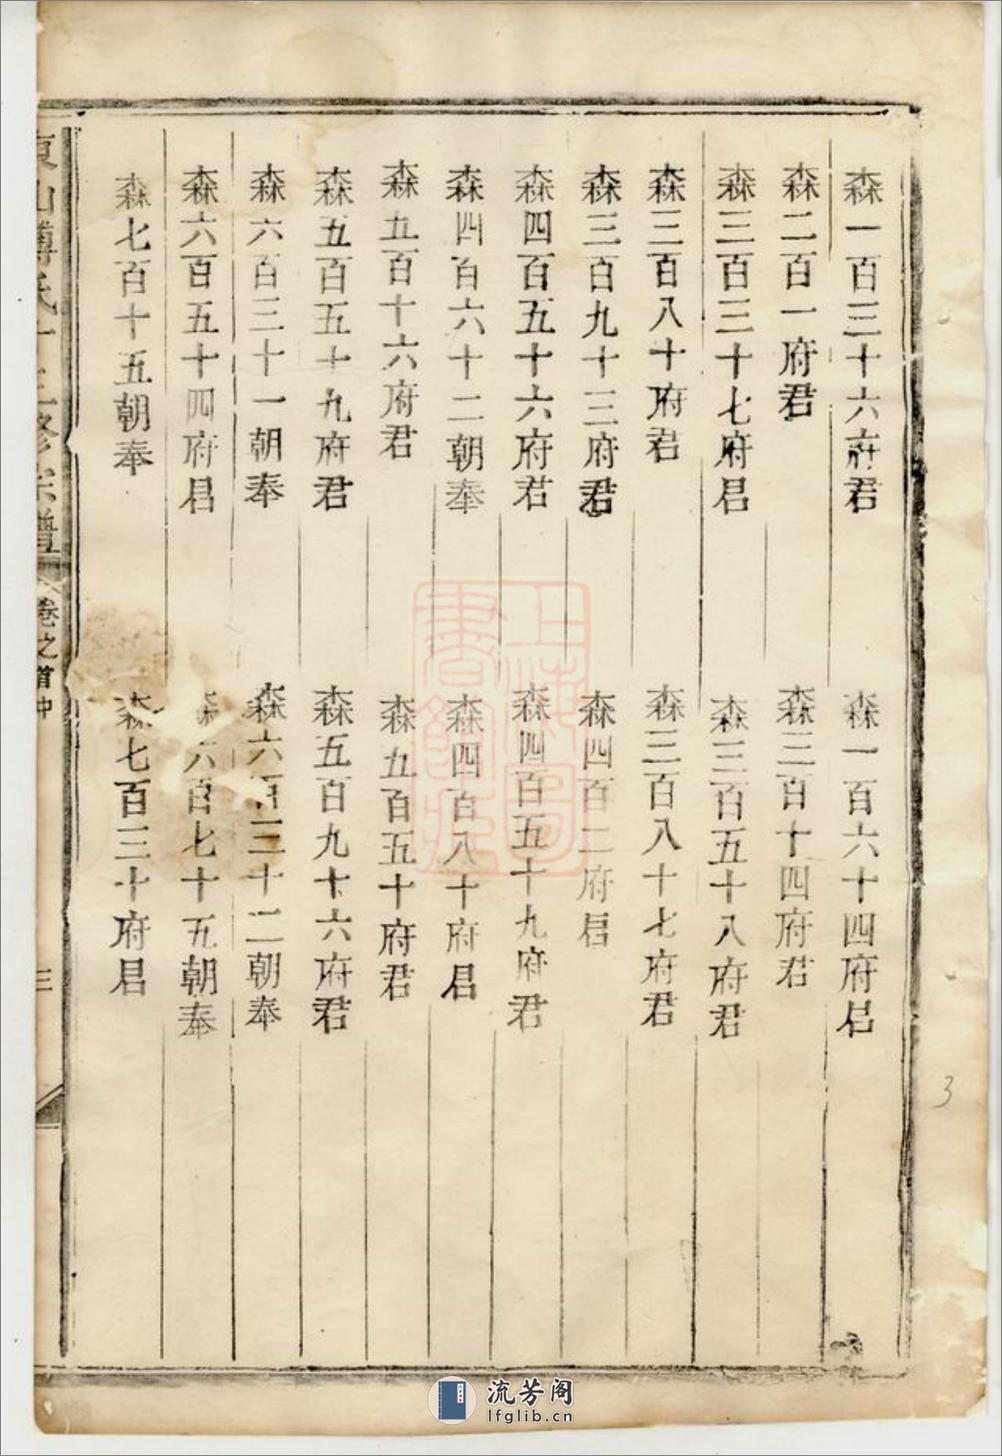 森一百三十六府君
森一百六十四府君
森二百一府君
森三百十四府君
森三百三十七府君
森三百五十八府君
森三百八十府君
森三百八十七府君
森三百九十三府君
森四百二府君
森四百五十六府君
森四百五十九府君
森四百六十二朝奉
森四百八十府君
森五百十六府君
森五百五十府君
森五百五十九府君
森五百九十六府君
森六百三十一朝奉
森六百三十二朝奉
森六百五十四府君
森六百七十五朝奉
森七百十五朝奉
森七百三十府君
氏 修宗譜
卷之首中
三
3
上海圖書館藏
流芳阁
lfglib.cn